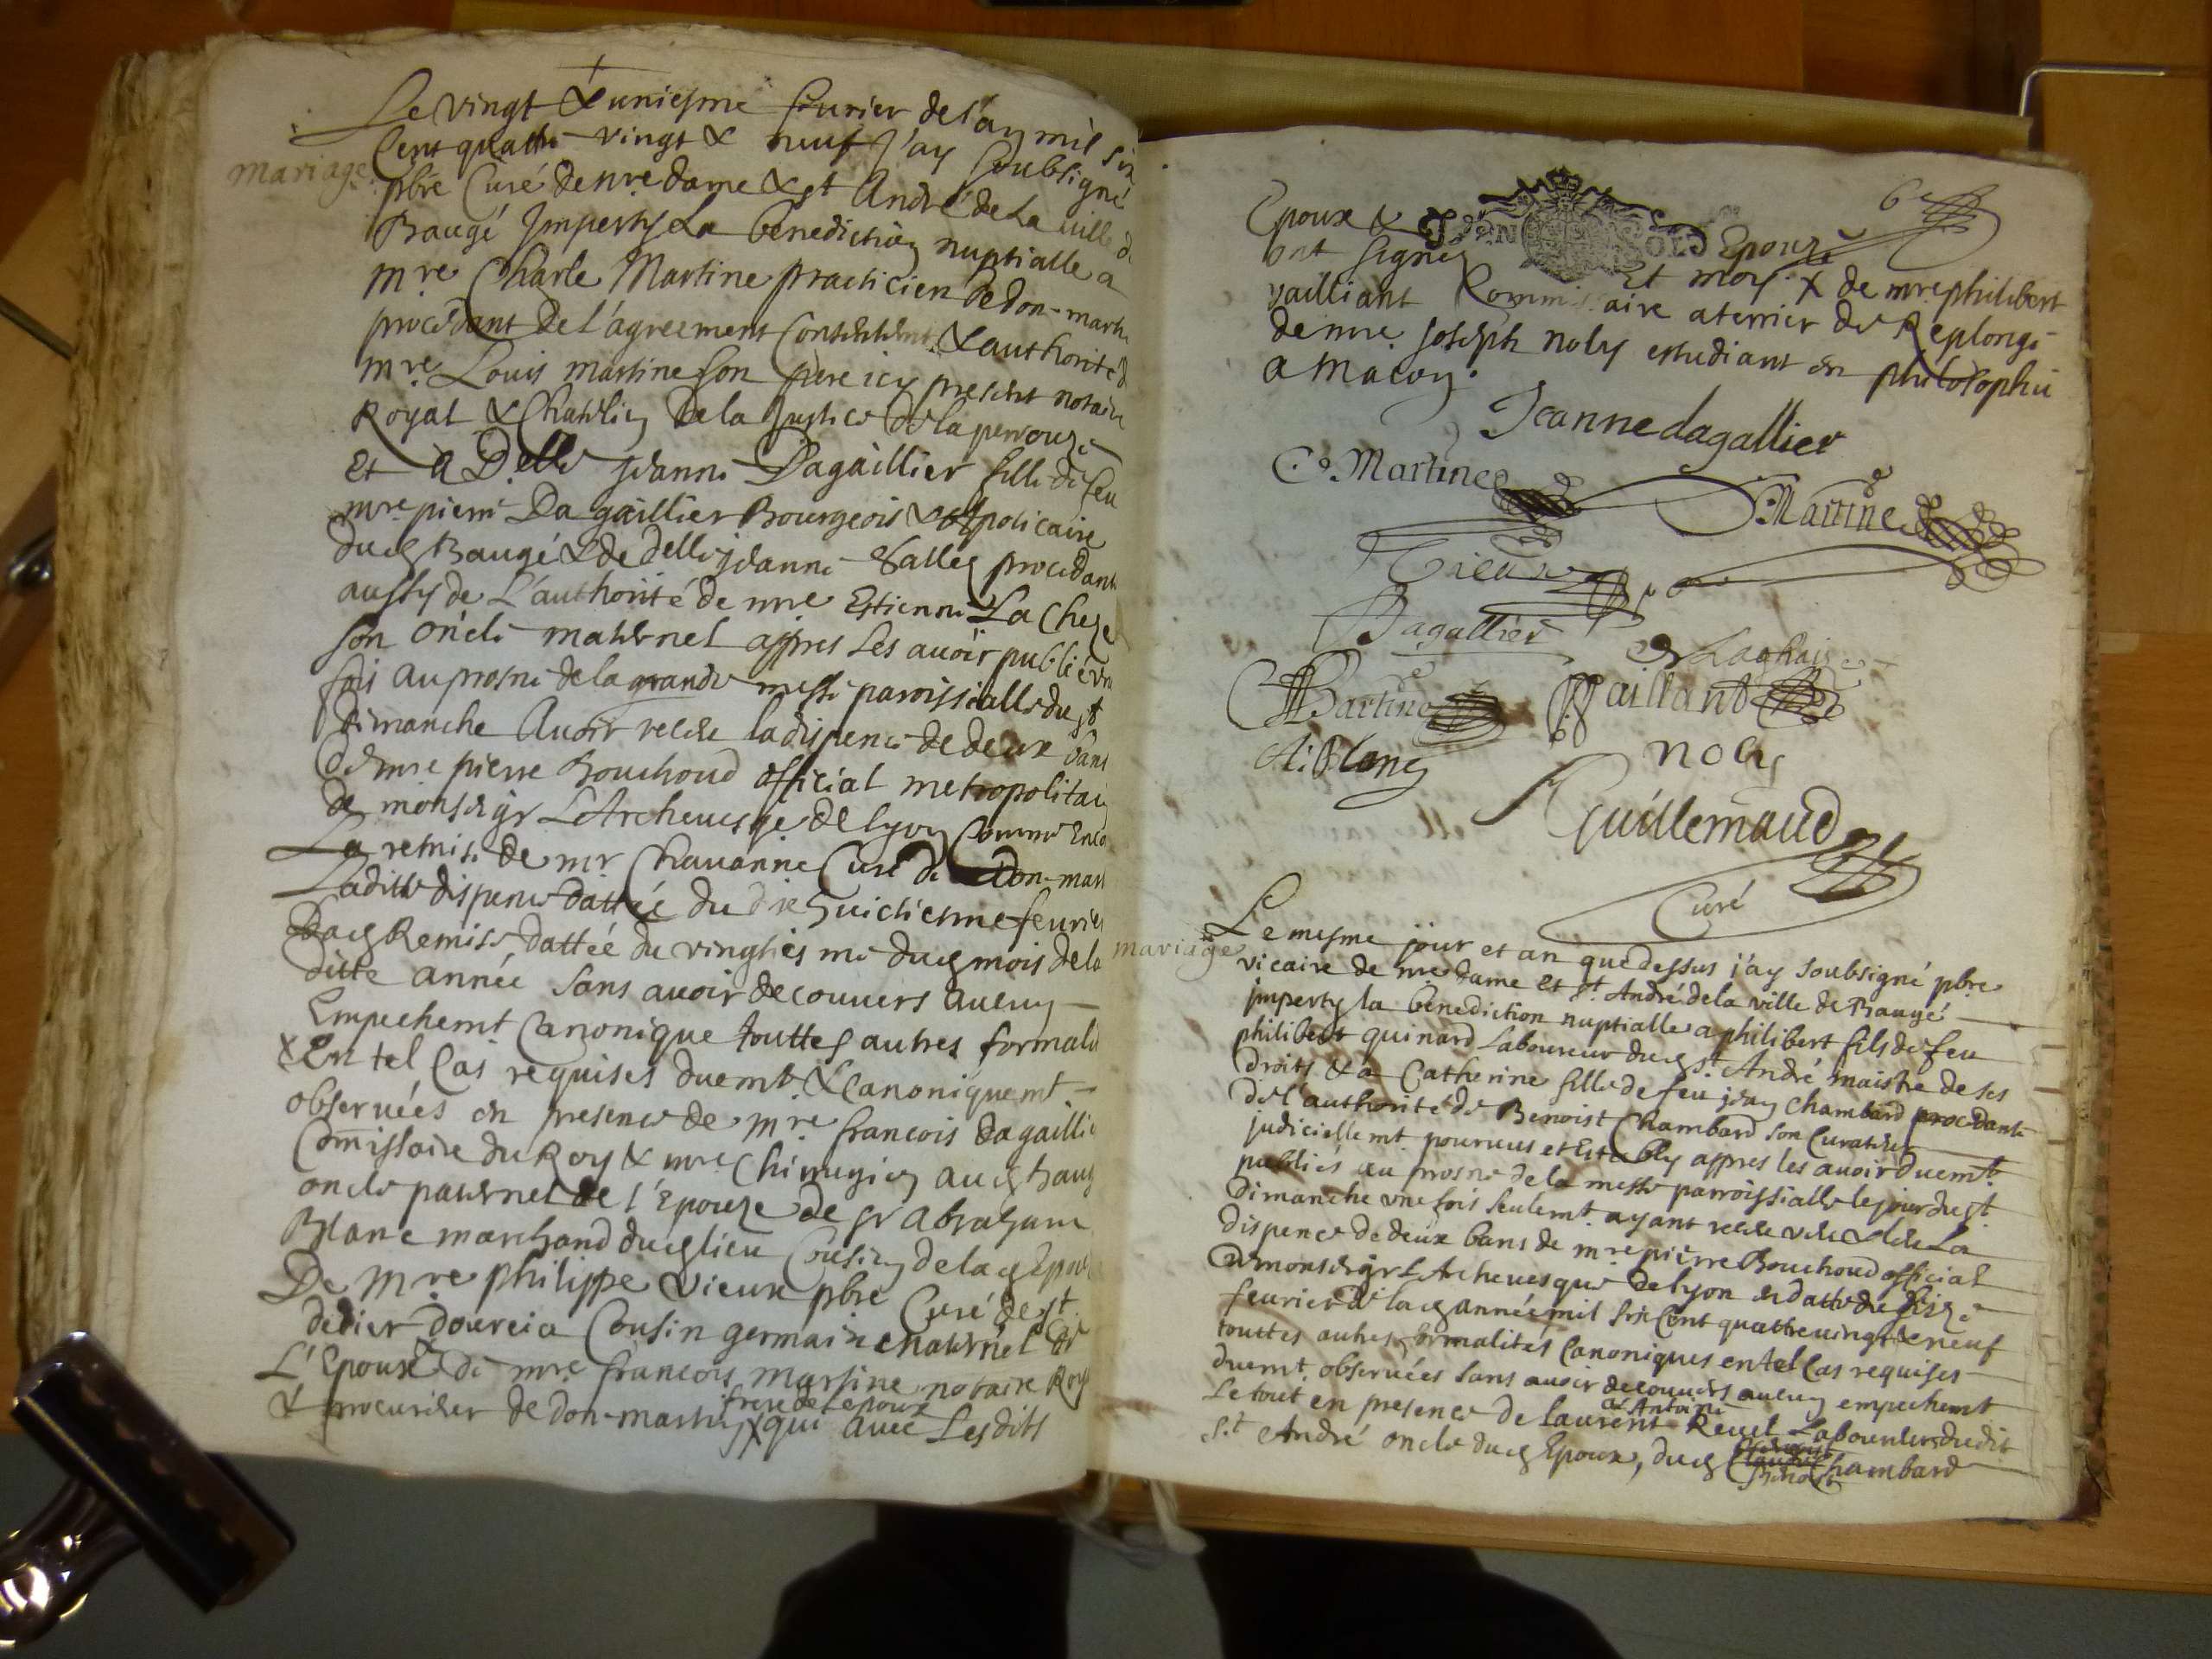 Le vingt & uniesme feurier de l'an mil six
mariage
Cent quattre vingt & neuf J'ay soubsigné
pbre Curé de nre dame & st André de la ville de
Baugé Imperty La benediction nuptialle a
mre Charle Martine practicien de don-marti
procedant de l'agreement Consentemt & authorité d
mre Louis martine son pere icy present notaire
Royal & Chatelin de la Justice de la perouze
Et a Delle jeanne Dagaillier fille de feu
mre pierre Dagaillier Bourgeois & Apoticaire
dud Baugé & de delle jeanne procedant
aussy de L'authorité de mre Estienne La Cheze
son oncle maternel appres Les auoir publié vne
fois au prosne de la grande messe paroissialle du st
Dimanche Auoir receu la dispence de deux bans
de mre pierre Bouchoud official metropolitain
de monseigr L'Archeuesque de lyon Comme Enco
La remise de mr Chauanne Curé de Don-mart
Laditte dispence dattée du dixhuictiesme feurier
Lad Remise dattée du vingtiesme dud mois de la
ditte année sans auoir decouuers aucun
Empechemt Canonique touttes autres formali
En tel Cas requises duemt & Canoniquemt
obseruées en presence de mre francois dagaillie
Commissaire du Roy & mre Chirurgien aud baug
oncle paternel de l'Epouze de sr abraham
Blanc marchand dud lieu Cousin de lad Epou
De mre philippe vieux pbre Curé de st
dedier Cousin germain maternel de
L'Epoux de mre francois Martine notaire Roy
frere de Lepoux
& procureur de don-martin X qui auec Lesdits
6e
Epoux & Epouze
ont signé Et moy X de mre philibert
vailliant Kommissaire a terrier de Replonge
de mre joseph noly estudiant en philosophie
a Macon.
Jeanne dagallier
C. Martine
Martine
Vieux
Dagallier
Laghaize
Martine
Vaillant
A: Blanc
noly
Guillemaud
Curé
mariage
Le mesme jour et an que dessus j'ay soubsigné pbre
vicaire de nre dame et st. André de la ville de Baugé
jmperty la benediction nuptialle a philibert fils de feu
philibert quinard Laboureur dud st. André maistre de ses
droits & a Catherine fille de feu jean Chambard procedante
de l'authorité de Benoist Chambard son Curateur
judiciellemt. pourueus et Estably appres les auoir duemt.
publiés au prosne de la messe parroissialle le jour du st.
dimanche vne fois seulemt. ayant receu La
dispence de deux bans de mre pierre Bouchoud official
de monseigr L'Archeuesque de lyon en datte du seize
feurier de lad année mil six Cent quattre uingt & neuf
touttes autres formalités Canoniques en tel Cas requises
duemt. obseruées sans auoir decouuers aucun empechemt
& Antoine
Le tout en presence de laurent Reuel Laboureurs dudit
st. André oncle dud Epoux, dud Chambard
Benoist